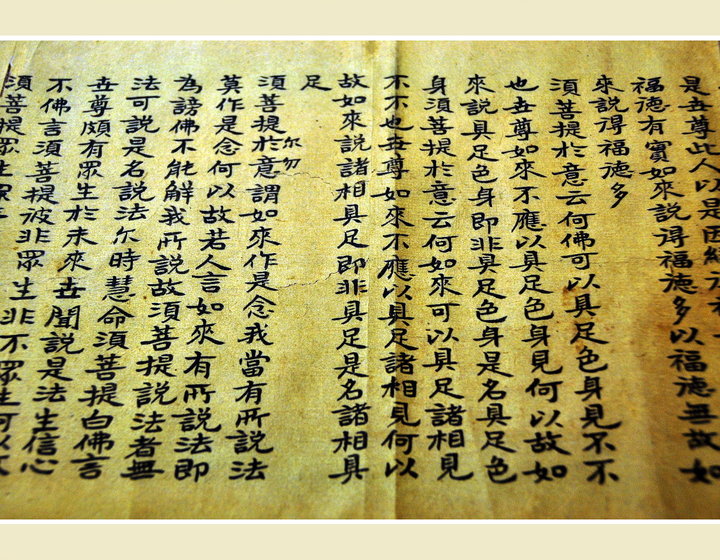 是世尊此人以是因緣
福德有實如來說得福德多以福德無故如
來說得福德多
須菩提於意云何佛可以具足色身見不不
也世尊如來不應以具足色身見何以故如
來說具足色身即非具足色身是名具足色
身須菩提於意云何如來可以具足諸相見
不不也世尊如來不應以具足諸相見何以
故如來說諸相具足即非具足是名諸相具
足
尔勿
須菩提於意謂如來作是念我當有所說法
莫作是念何以故若人言如來有所說法即
為謗佛不能解我所說故須菩提說法者無
法可說是名說法尔時慧命須菩提白佛言
世尊頗有眾生於未來世聞說是法生信心
不佛言須菩提彼非眾生非不眾生何以
須菩提眾生眾